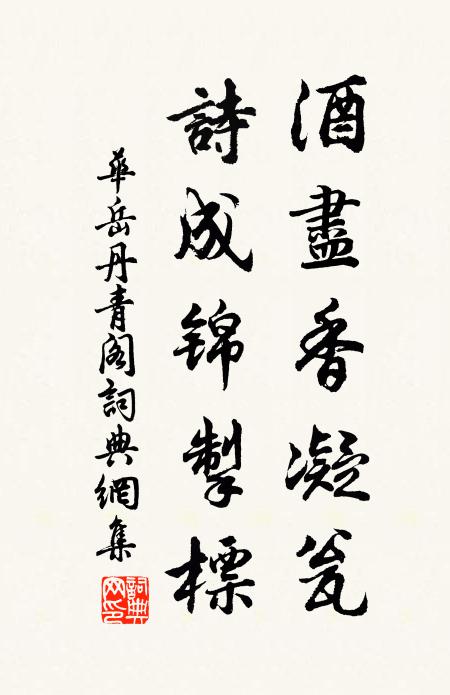 酒盡香凝瓮
詩成錦掣標
華岳丹青閣詞典網集
詞典网印